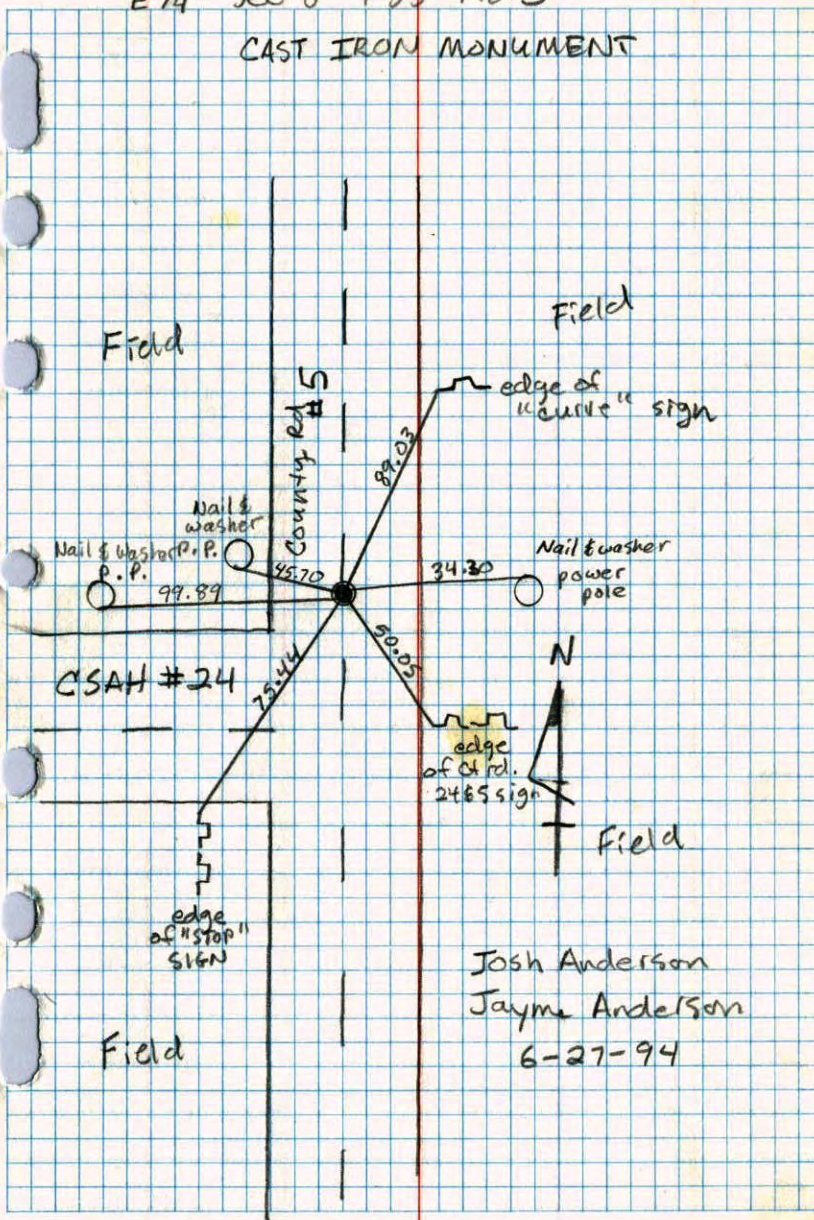 CAST IRON MONUMENT
Field
Field
County Rd
#5
edge of
"curve" sign
89.03
Nail &
washer
P.P.
Nail & washer
P.P.
45.70
99.89
34.30
Nail & washer
power
pole
CSAH #24
75.44
50.05
N
edge
of Ct rd.
24 & 5 sign
Field
edge
of "STOP"
SIGN
Josh Anderson
Jayme Anderson
6-27-94
Field